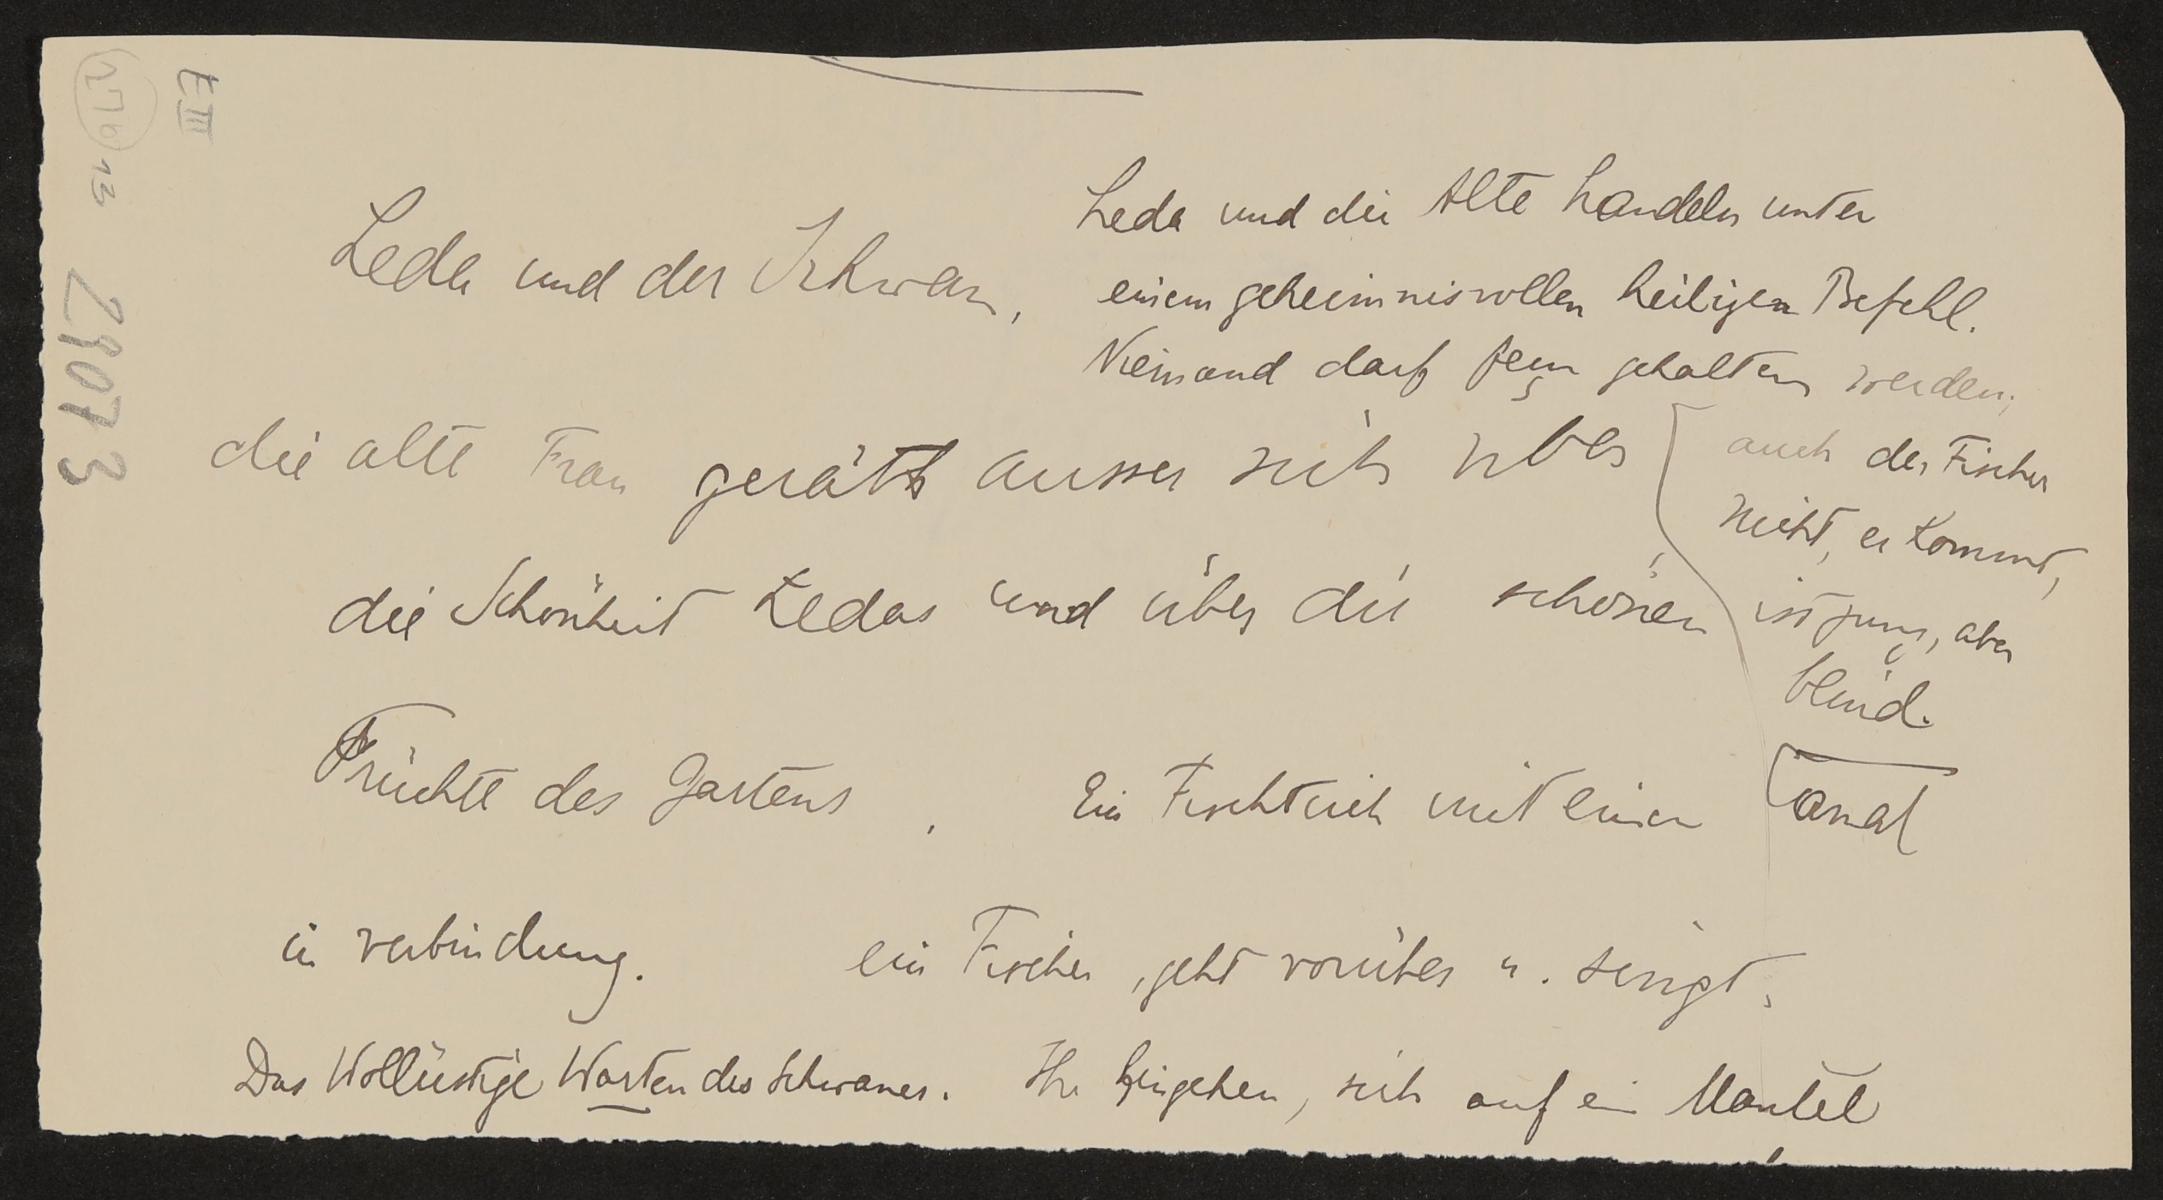 E III
27b 13
29073
Leda und der Schwan,
Leda und die Alte handeln unter
einem geheimnisvollen heiligen Befehl.
Niemand darf fern gehalten werden,
auch der Fischer
nicht, er kommt,
ist jung, aber
blind.
die alte Frau geräth ausser sich über
die Schönheit Ledas und über die schönen
Früchte des Gartens, Ein Fischteich mit einem Canal
in verbindung. ein Fischer, geht vorüber u. singt,
Das Wollüstige Warten des Schwanes. Ihr hingehen, sich auf ein Mantel